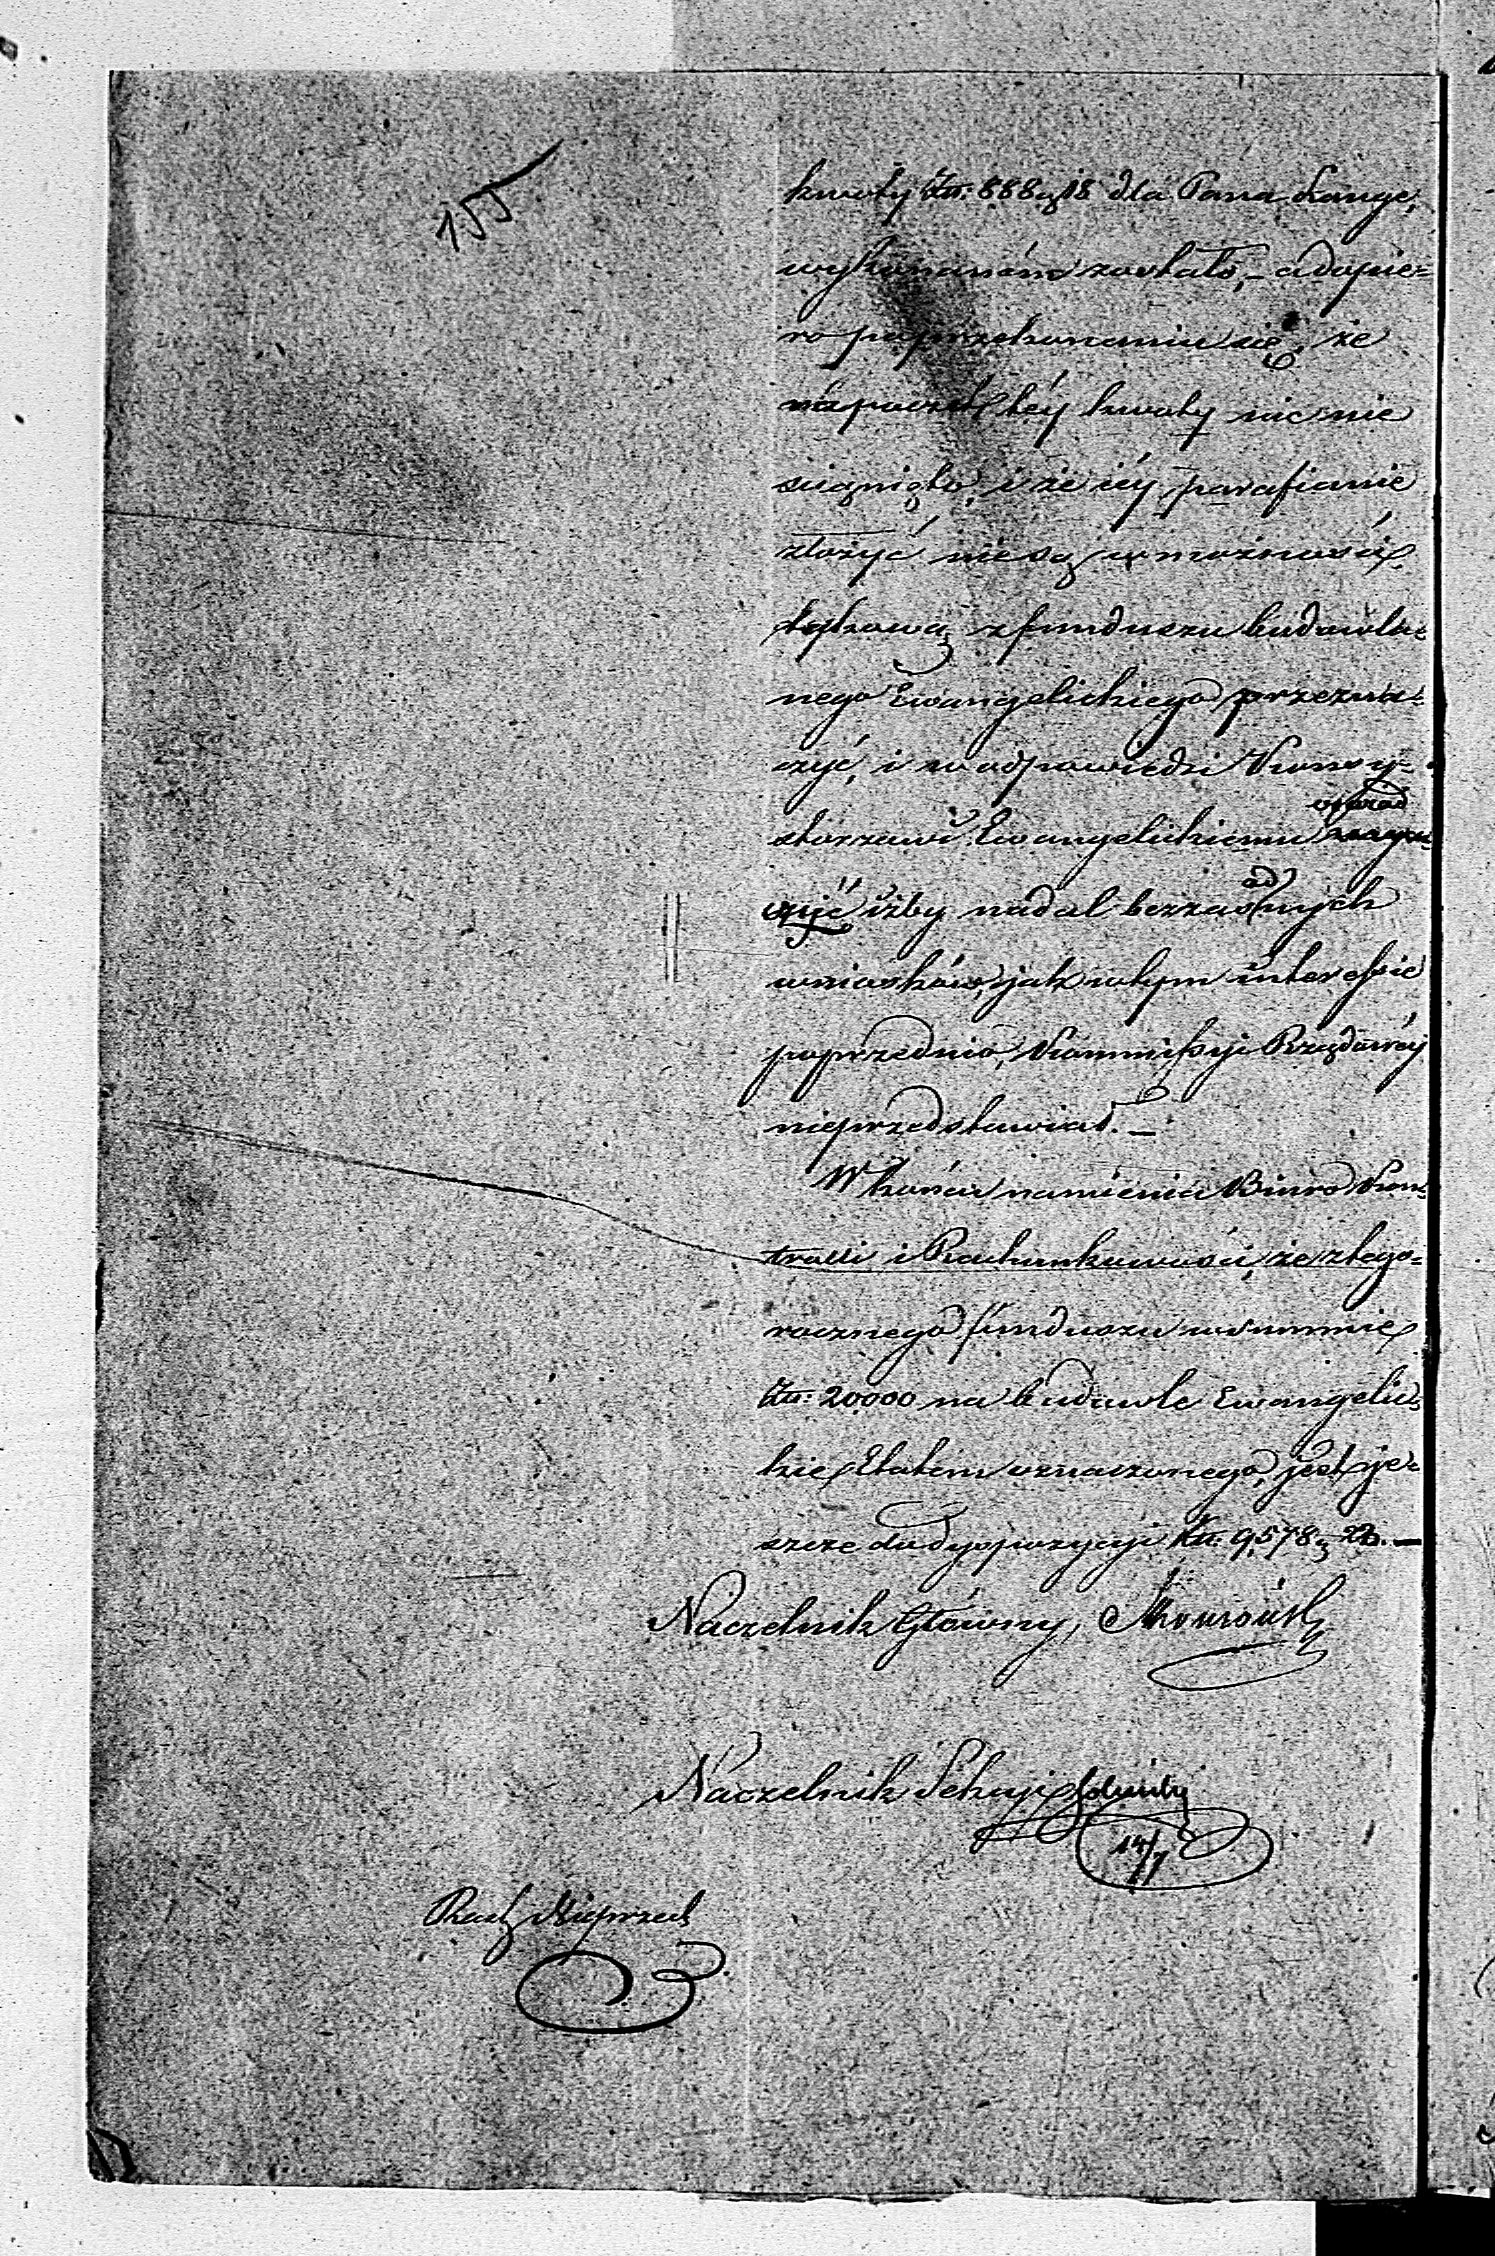 155
kwoty Złt: 888 g 18 dla Pana Lange,
wykonaném zostało, – a dopie=
ro po przekonaniu się, że
na poczet téy kwoty nic nie
sciągnięto, i że iéy parafianie
złożyć nie są w możności,
takową z funduszu budowla=
nego Ewangelickiego przezna=
czyć, i w odpowiedzi Konsy=
storzowi Ewangelickiemu
iżby nadal bezzasadnych
wniosków, jak w tym interessie
poprzednio, Kommissyi Rządowéy
nieprzedstawiał. –
W końcu namienia Biuro Kon=
trolli i Rachunkowości, że z tego=
rocznego funduszu w summie
Złt: 20000 na budowle Ewangelic=
kie Etatem oznaczonego, jest je=
szcze do dyspozycyi Złt. 9,578 g 22. –
Naczelnik Główny,
Naczelnik Sekcyi
14/7
Rach